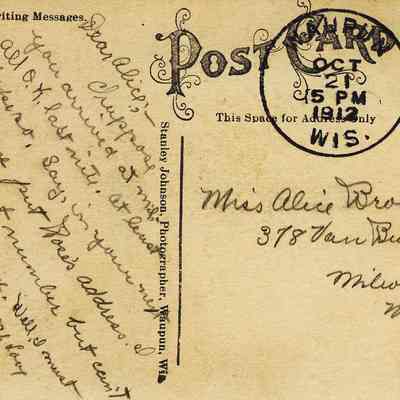 riting Messages.
POST CARD
This Space for Address Only
WAUPUN
OCT
21
5 PM
1912
WIS.
Dear Alice;-
I suppose
you arrived at mil.
all O.K. last nite. at least
so. Say, in your next
put Rose's address. I
number but can't
Well I must
Stanley Johnson, Photographer, Waupun, Wis
Miss Alice Bro
378 Van Bu
Milw